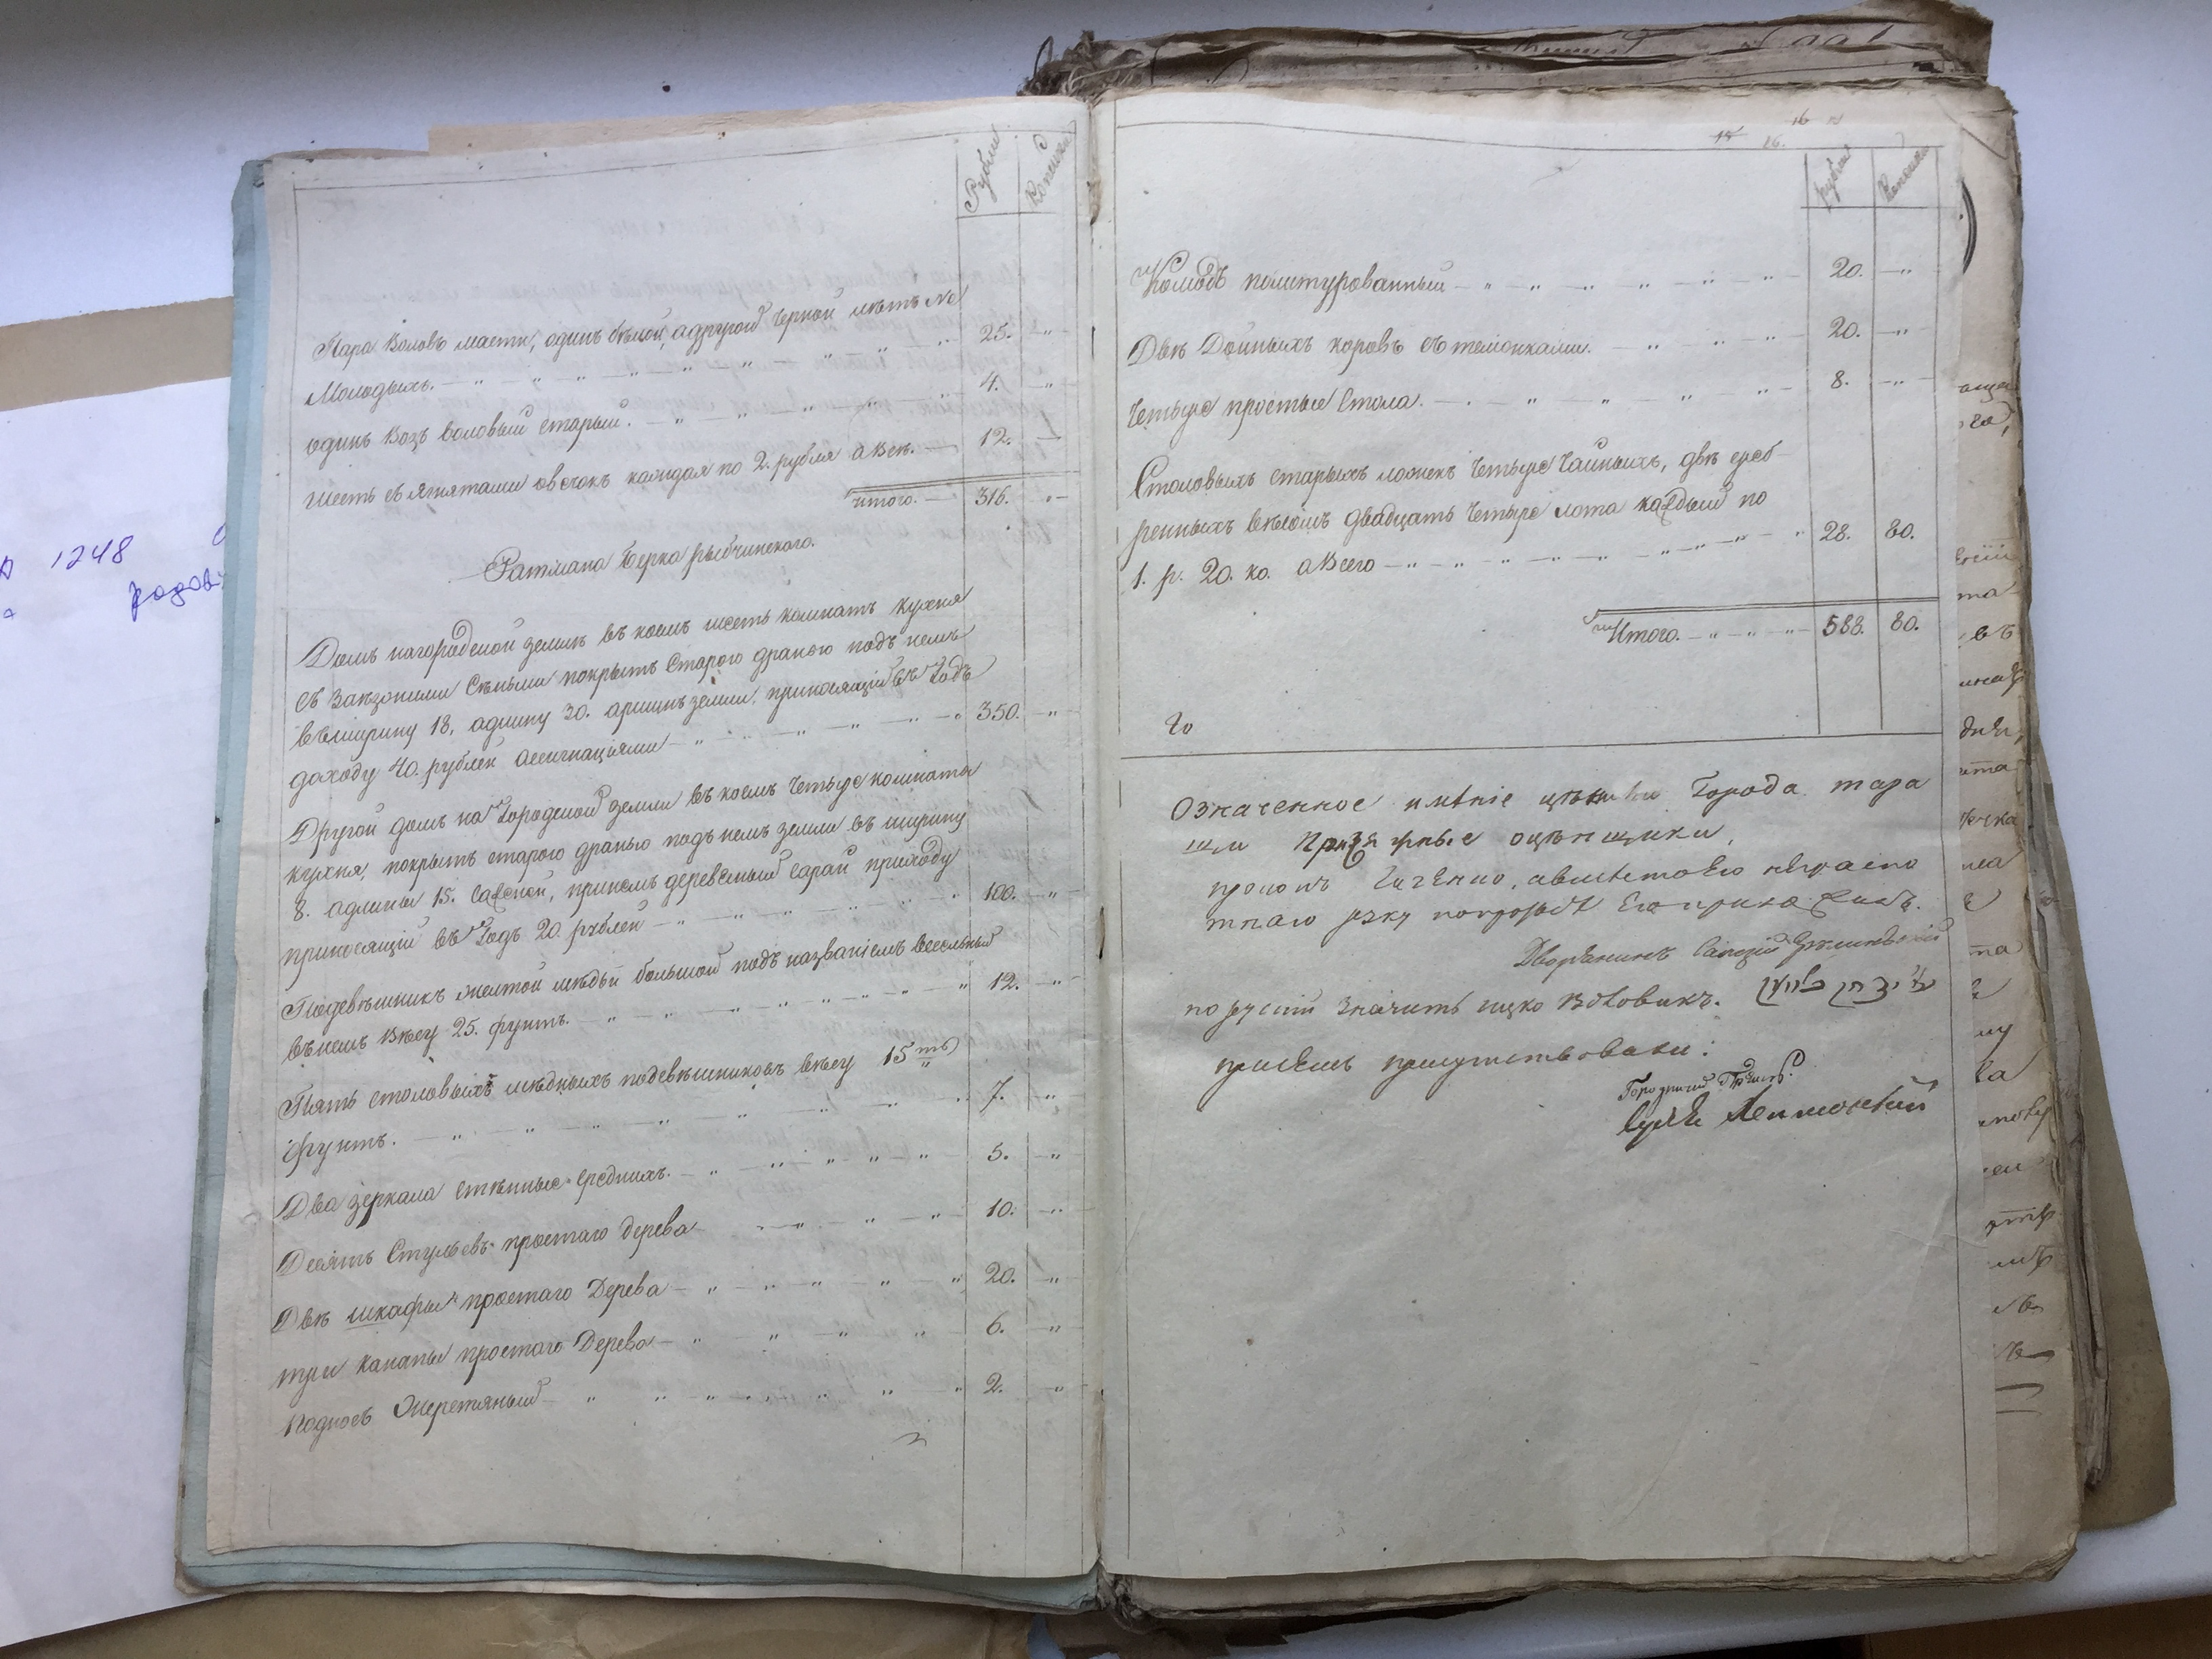 Рубли Копейки
Пара Воловъ масти, одинъ бѣлой, адругой Черной лѣтъ не
Молодыхъ. 25. "
одинъ Возъ воловый старый. 4. "
шесть съ Ягнятами овечокъ каждая по 2. рубля аВсѣ. 12. "
итого. 316. "
Ратмана Берка рыбчинского.
Домъ нагородской землѣ въ коемъ шесть комнатъ кухня
съ Заѣзжими Сѣньми покрытъ Старою дранью подъ немъ
въширину 18, адлину 30. аршинъ земли, приносящій въ Годъ
доходу 40. рублей Ассигнациями 350. "
Другой домъ на Городской земли въ коемъ Четыре комнаты
кухня, покрытъ старою дранью подъ немъ земли въ ширину
8. адлины 15. Саженой, принемъ деревеный сарай приходу
приносящій въ Годъ 20 рублей 100. "
Подсвѣшникъ желтой мѣдьи большой подъ названіемъ весельный
въ немъ Вѣсу 25. фунтъ. 12. "
Пять столовыхъ мѣдныхъ подсвѣшниковъ вѣсу 15тъ
Фунтъ. 7. "
Два зеркала стѣнные Средних. 5. "
Десять Стульевъ простаго дерева 10. "
Двѣ шкафы простаго Дерева 20. "
три канапы простаго Дерева 6. "
Подносъ Жерстяный 2. "
1248
15 16. 16
рубли Копейки
Комодъ политурованный 20. "
Двѣ Дойныхъ коровъ съ телюнками. 20. "
Четыре простые Стола. 8. "
Столовыхъ старыхъ ложекъ Четыре Чайныхъ, двѣ среб-
ренныхъ вѣсомъ двадцать Четыре лота каждый по
1. р. 20. ко. аВсего 28. 80.
Итого. 588. 80.
Означенное имѣніе Города тара
щи оцѣнщики,
Дворянинъ
по руски значитъ ицко Вововикъ.
присемъ присутствовали: